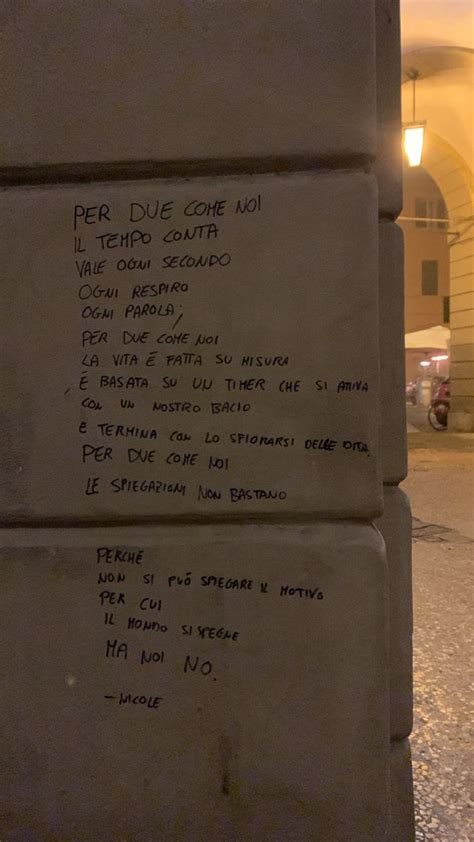 PER DUE COME NOI
IL TEMPO CONTA
VALE OGNI SECONDO
OGNI RESPIRO
OGNI PAROLA;
PER DUE COME NOI
LA VITA É FATTA SU MISURA
É BASATA SU UN TIMER CHE SI ATTIVA
CON UN NOSTRO BACIO
E TERMINA CON LO SFIORARSI DELLE DITA.
PER DUE COME NOI
LE SPIEGAZIONI NON BASTANO
PERCHÉ
NON SI PUÓ SPIEGARE IL MOTIVO
PER CUI
IL MONDO SI SPEGNE
MA NOI NO.
– NICOLE